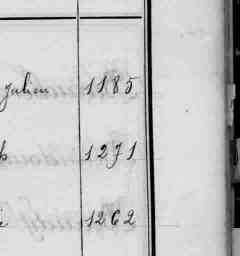 Julien 1185
1271
1262